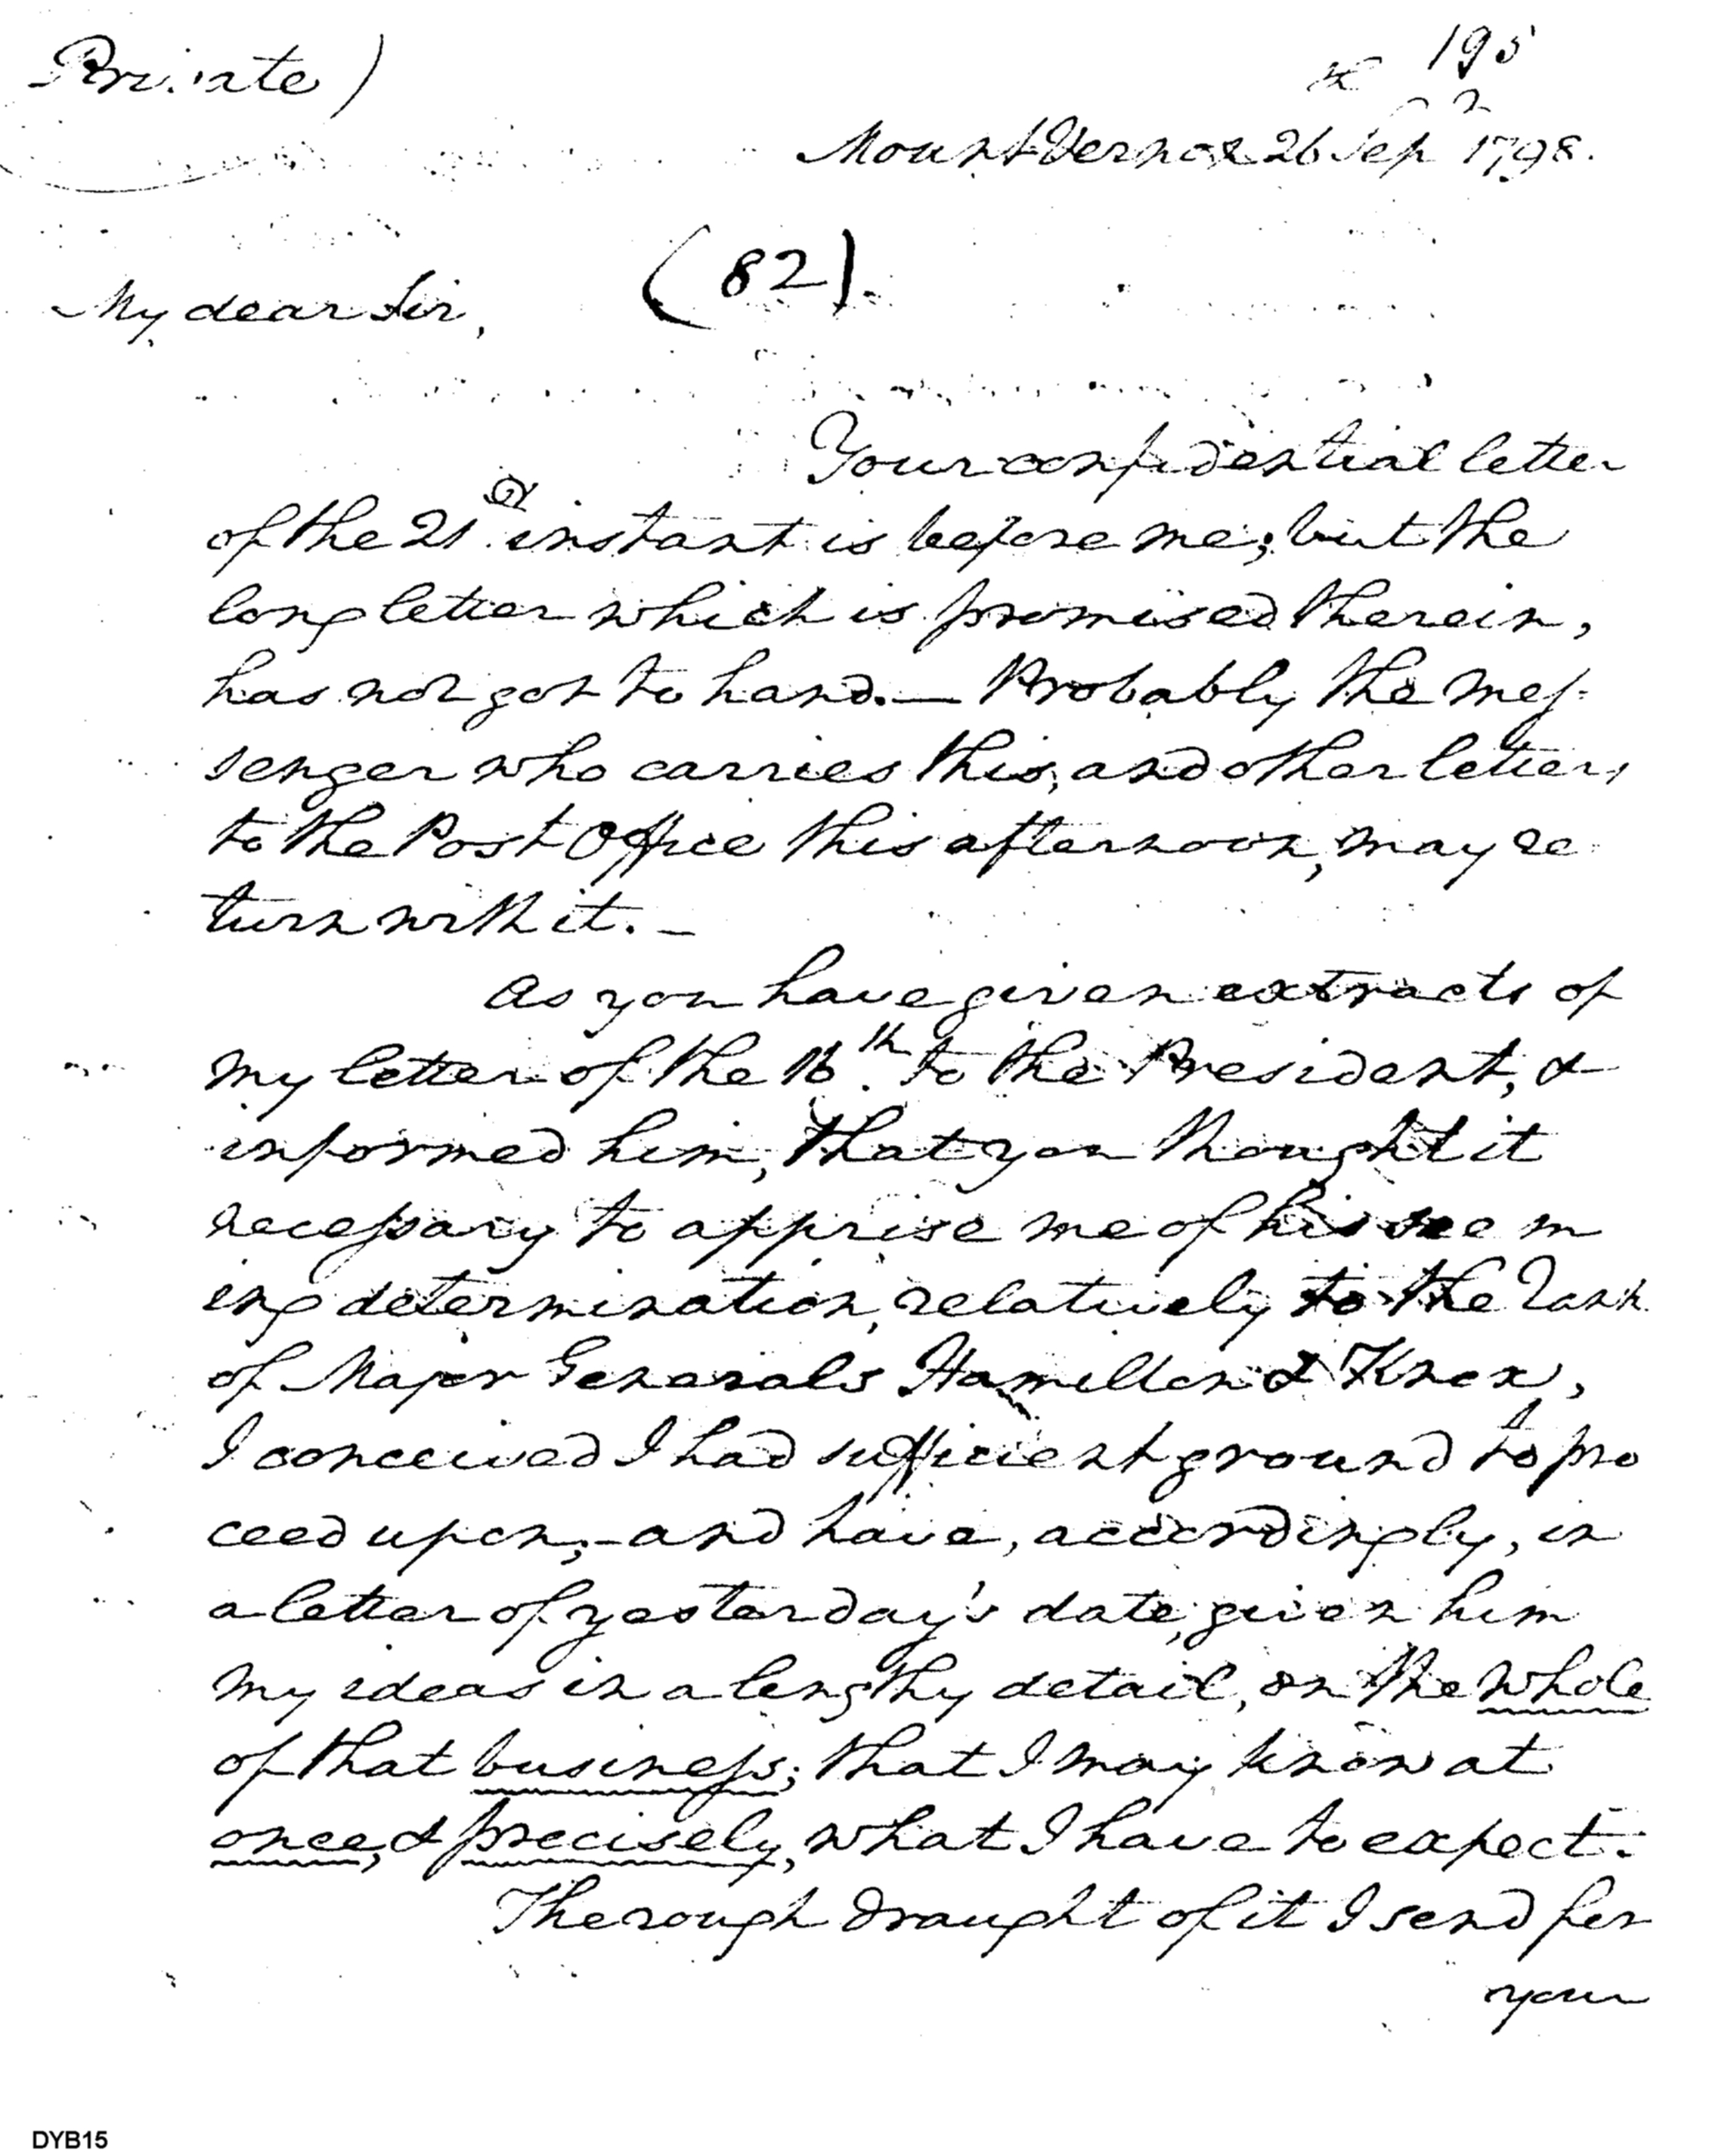 Private)
195
Mount Vernon 26 Sep 1798.
(82).
My dear Sir,
Your confidential letter
of the 21st instant is before me; but the
long letter which is promised therein,
has not got to hand.— Probably the mes-
senger who carries this, and other letters
to the Post Office this afternoon, may re
turn with it. –
As you have given extracts of
my letter of the 16th. to the President, &
informed him, that you thought it
necessary to apprise me of his seem
ing determination, relatively to the Rank
of Major Generals Hamilton & Knox,
I conceived I had sufficient ground to pro
ceed upon;–and have, accordingly, in
a letter of yesterday's date, given him
my ideas in a lengthy detail, on the whole
of that business; that I may know at
once, & precisely, what I have to expect.
The rough draught of it I send for
your
DYB15